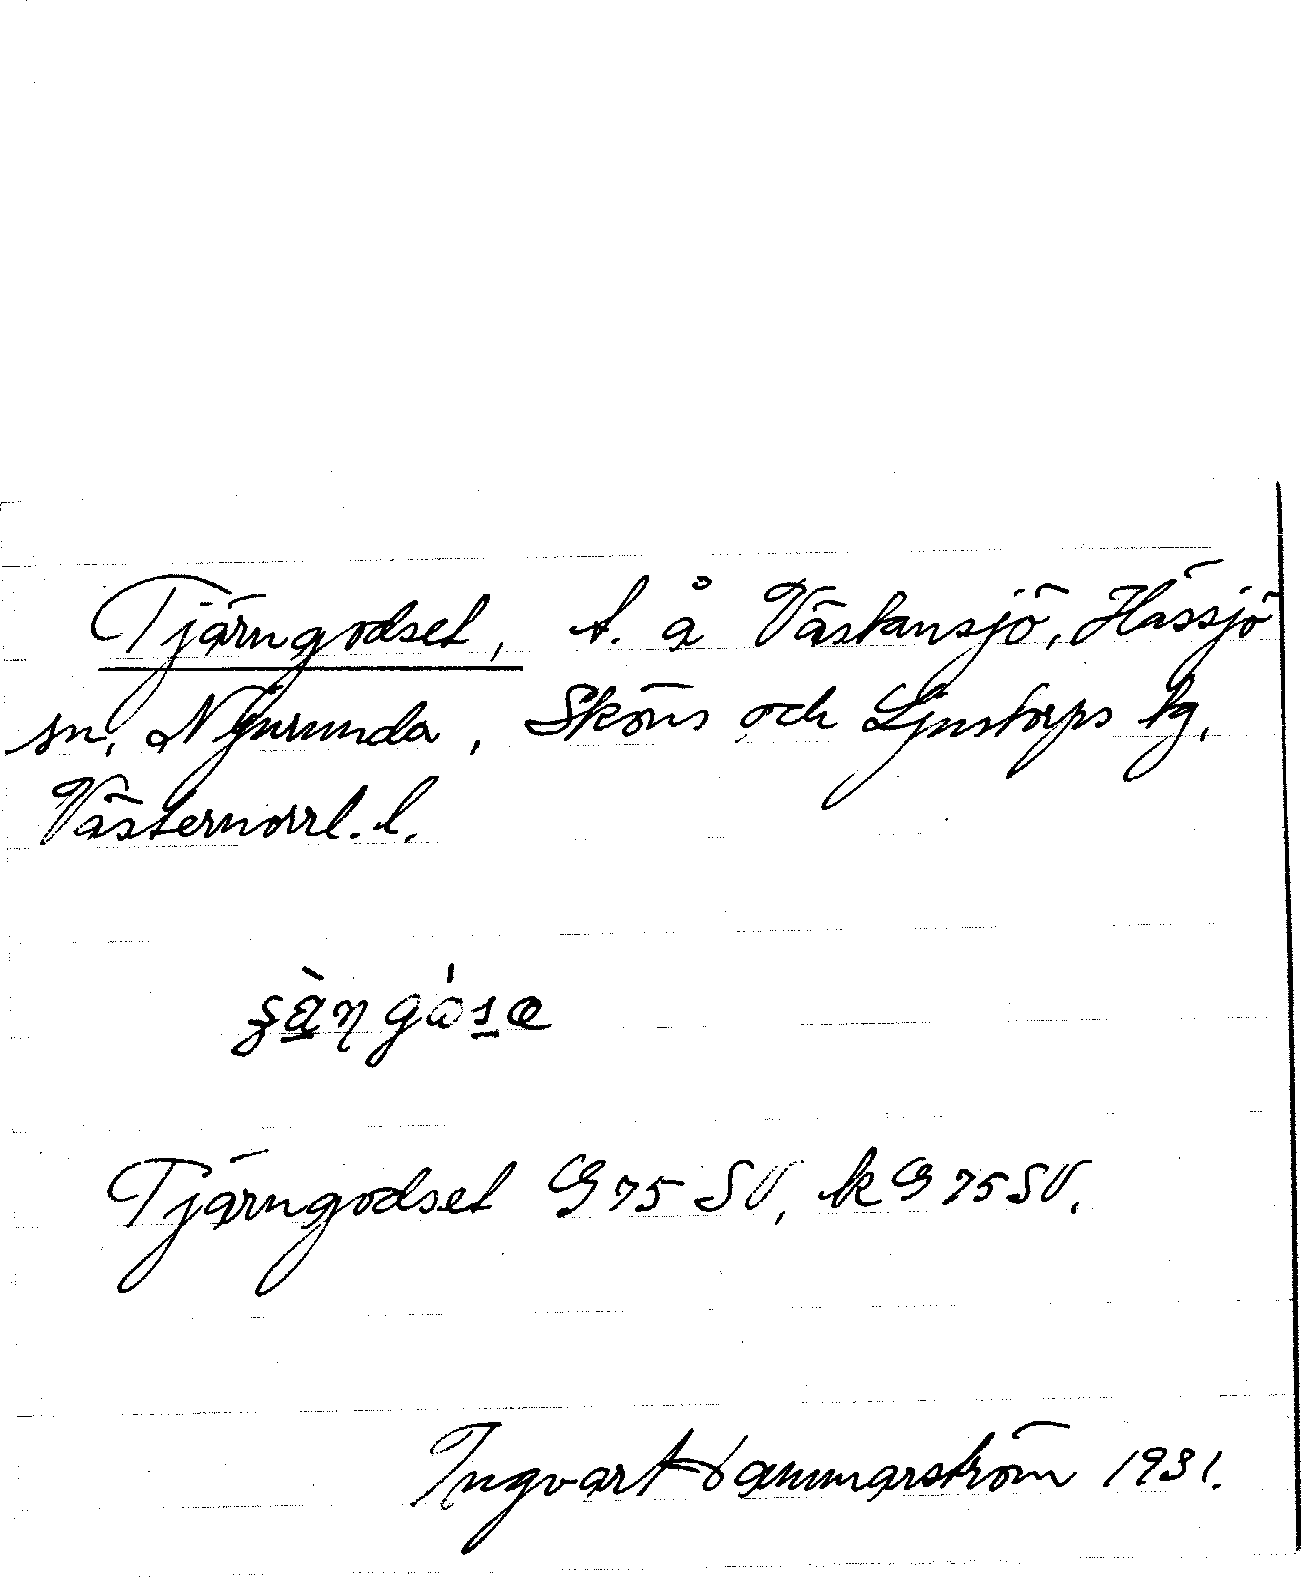 Tjärngodset, t. å Västansjö, Hässjö
sn, Njurunda, Sköns och Ljustorps tg,
Västernorrl. l.
Tjärngodset G 75 SV, k G 75 SV.
Ingvar Hammarström 1931.